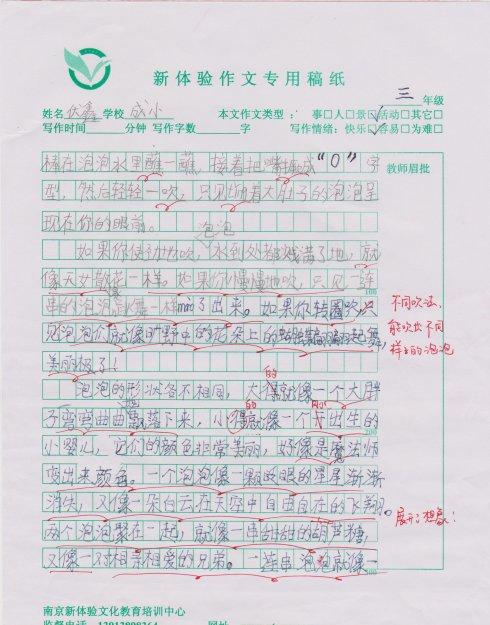 新体验作文专用稿纸
三年级
姓名 伏鑫 学校 成小 本文作文类型： 事□人□景□活动□其它□
写作时间 分钟 写作字数 字 写作情绪：快乐□容易□为难□
棒在泡泡水里蘸一蘸，接着把嘴 成“O”字 教师眉批
型，然后轻轻一吹，只见 着大肚子的泡泡呈
现在你的眼前。
泡泡
如果你使劲地吹， 到处都 满了地，就
像天女散花一样。如果你慢慢地吹，只见一连
串的泡泡 舞一样 了出来。如果你转圈吹只
100
见泡泡们就像旷野中的花朵上的 翩翩起舞，
美丽极了！
不同吹法，
能吹出不同
样子的泡泡
泡泡的形状各不相同，大 就像一个大胖
的
子弯弯曲曲 落下来，小 就像一个刚出生的
的
200
小婴儿，它们的颜色非常美丽，好像是魔法师
变出来颜色。一个泡泡像一颗 眼的星星渐渐
消失，又像一朵白云在天空中自由自在的飞翔。
展开了想象！
两个泡泡聚在一起，就像一串甜甜的葫芦糖，
又像一对相亲相爱的兄弟。一连串泡泡就像一
300
南京新体验文化教育培训中心
监督电话